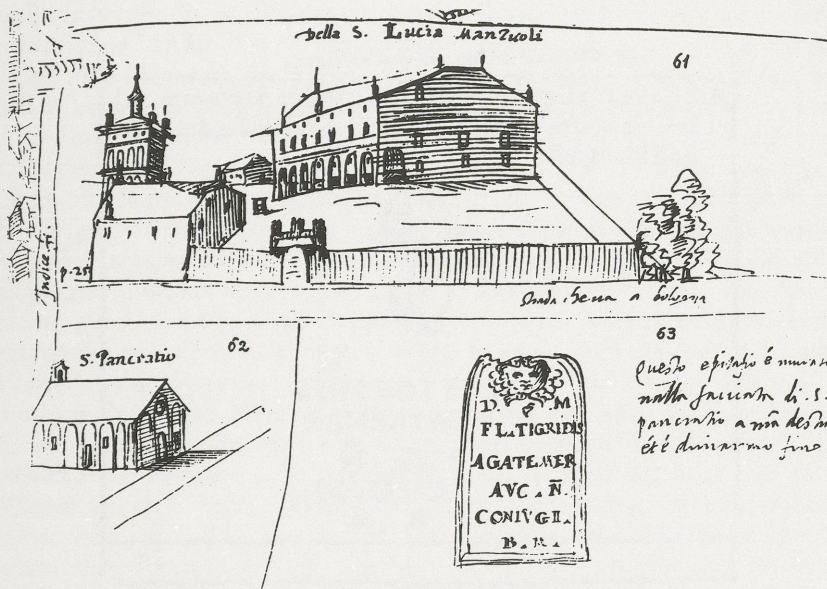 Della S. Lucia Manzuoli
61
p. 25
Strada che va a bologna
S. Pancratio
62
63
D. M
FL. TIGRIDIS
AGATEMER
AVC. N̄.
CONIVGII.
B. M.
Questo epitafio é murato
nalla facciata di S.
pancratio a
é di marmo fino